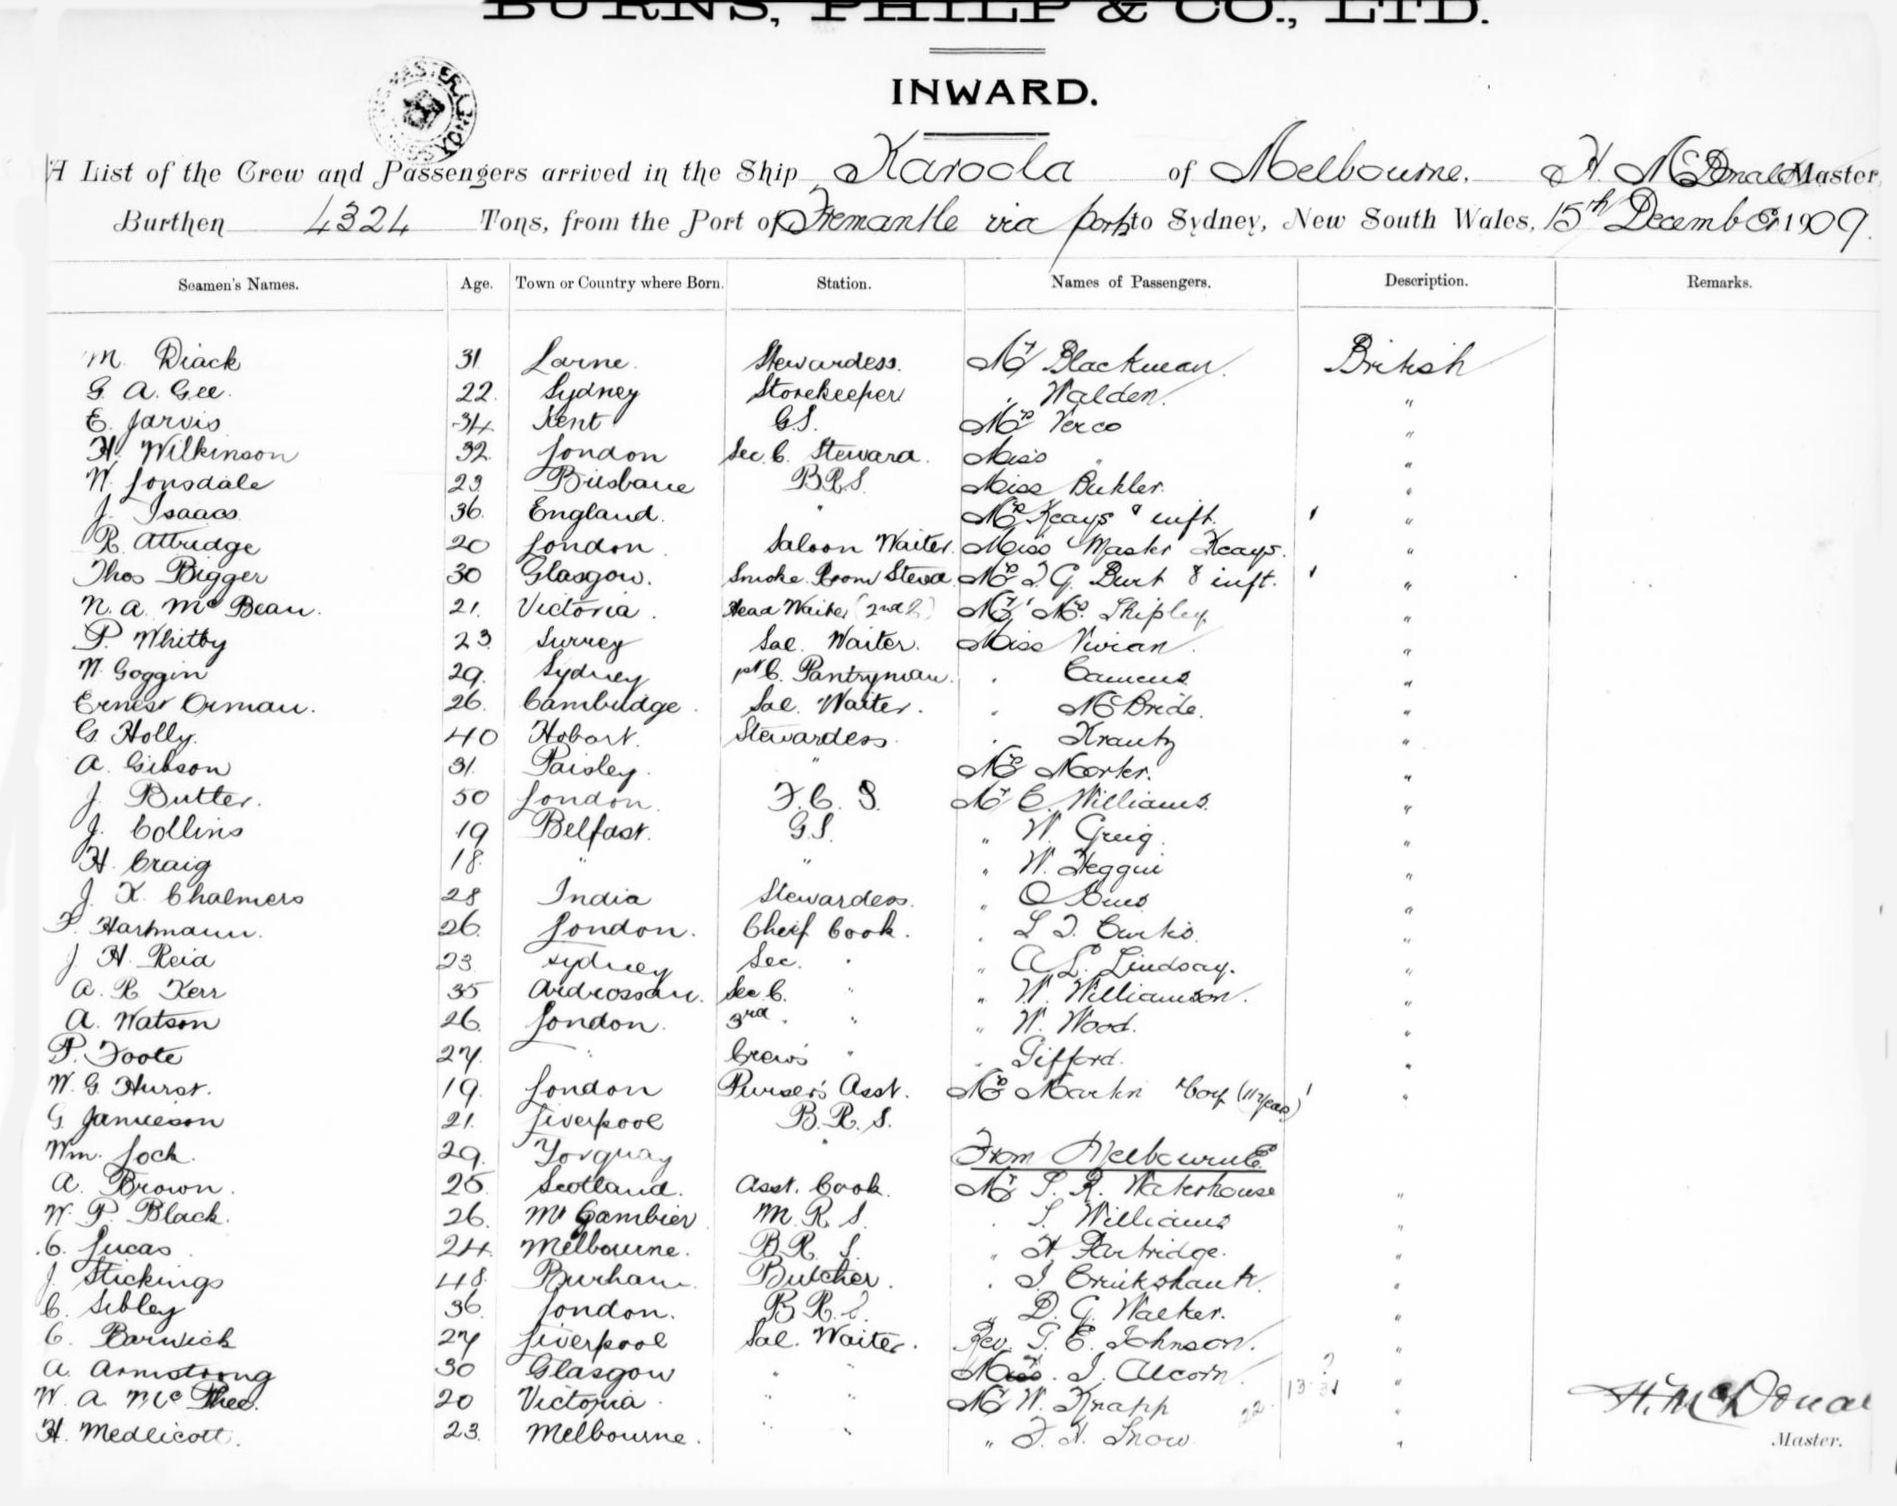 BURNS, PHILP & CO., LTD.
INWARD.
A List of the Crew and Passengers arrived in the Ship Karoola of Melbourne, H. McDonald Master,
Burthen 4324 Tons, from the Port of Fremantle via ports to Sydney, New South Wales, 15th December 1909.
Seamen's Names. Age. Town or Country where Born. Station. Names of Passengers. Description. Remarks.
M. Diack 31 Larne. Stewardess. Mr Blackman. British
G. A. Gee. 22. Sydney Storekeeper " Walden. "
E. Jarvis 34 Kent G.S. Mrs Verco "
H. Wilkinson 32. London Sec. C. Steward. Miss " "
W. Lonsdale 23. Brisbane B.R.S. Miss Butler. "
J. Isaacs 36. England. " Mrs Keays & inft. "
R. Attridge 20 London. Saloon Waiter. Miss & Master Keays. "
Thos Bigger 30 Glasgow. Smoke Room Stewd Mrs T. G. Burt & inft. "
N. A. McBean. 21. Victoria. Head Waiter (2nd C) Mr & Mrs. Shipley "
P. Whitby 23 Surrey Sal. Waiter. Miss Vivian. "
W. Goggin 29. Sydney 1st C. Pantryman. " "
Ernest Orman. 26. Cambridge. Sal. Waiter. " McBride. "
G. Holly. 40 Hobart. Stewardess. " Krantz "
A. Gibson 31. Paisley. " "
J. Butter. 50 London. F. C. S. Mr C. Williams. "
J. Collins 19 Belfast. G.S. " W. Greig. "
H. Craig 18. " " " W. Heggie "
J. K. Chalmers 28 India Stewardess. " "
F. Hartmann. 26. London. Cheif Cook. " L. T. Curtis. "
J. H. Reid 23 Sydney Sec. " " A. L. Lindsay. "
A. R. Kerr 35 Ardrossan. Sec C. " " W. Williamson. "
A. Watson 26. London. 3rd " " W. Wood. "
P. Foote 27. " Crew's " " Gifford. "
W. G. Hurst. 19. London Purser's Asst. Mrs Martin & boy (11 years) "
G. Jamieson 21. Liverpool B. R. S.
Wm. Lock. 29. Torquay " From Melbourne
A. Brown. 25 Scotland. Asst. Cook. Mr S. R. Waterhouse "
W. P. Black. 26. Mt Gambier M. R. S. " S. Williams "
C. Lucas 24. Melbourne. B. R. S. " H. Partridge. "
J. Stickings 48. Durham. Butcher. " J. Cruikshank. "
C. Sibley 36. London. B. R. S. " D. G. Walker. "
C. Barwick 27 Liverpool Sal. Waiter. Rev. G. E. Johnson. "
A. Armstrong 30 Glasgow " " J. Alcorn. "
W. A. McPhee. 20 Victoria. " " Mr W. Knapp "
H. Medlicott. 23. Melbourne. " " " F. H. Snow. "
H. McDonal
Master.